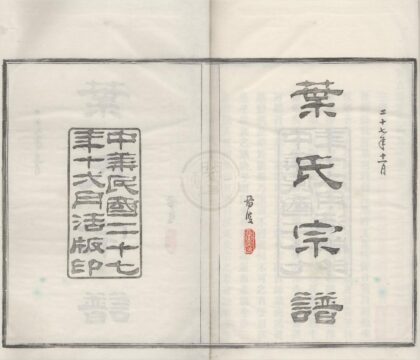 二十七年十一月
葉氏宗譜
中華民國二十七
年十弌月活版印